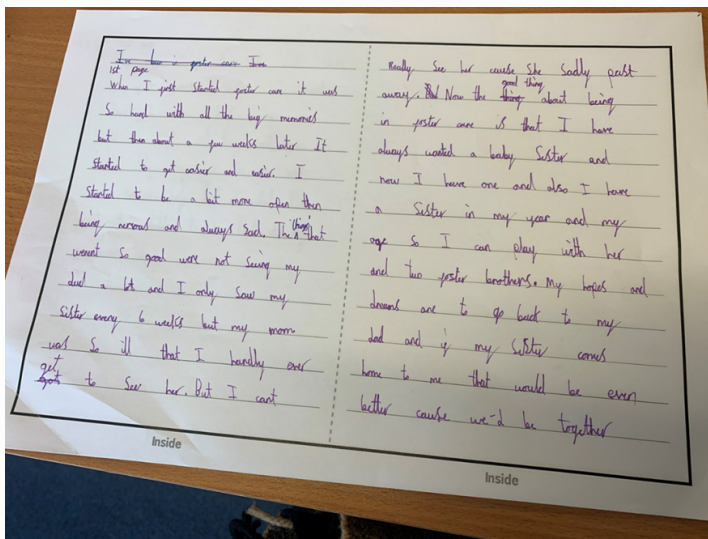 I've been in foster care I've
1st page
When I first started foster care it was
So hard with all the big memories
but then about a few weeks later It
Started to get easier and easier. I
Started to be a bit more open then
being nervous and always Sad. The things that
werent So good were not Seeing my
dad a lot and I only Saw my
Sister every 6 weeks but my mom
was So ill that I hardly ever
get
got to See her. But I cant
Really See her cause She Sadly past
good thing
away. And Now the thing about being
in foster care is that I have
always wanted a baby Sister and
now I have one and also I have
a Sister in my year and my
age So I can play with her
and two foster brothers. My hopes and
dreams are to go back to my
dad and if my Sister comes
home to me that would be even
better cause we'd be together
Inside
Inside